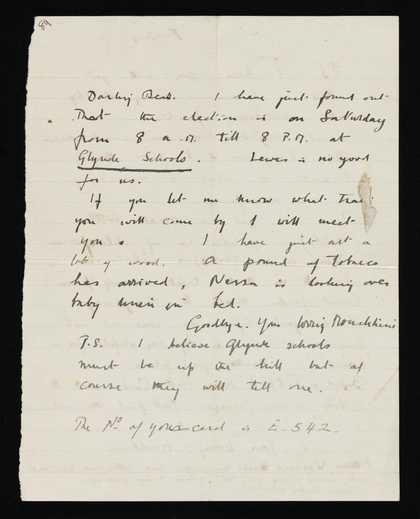 89
Darling I have just found out
that the election is on Saturday
from 8 a.m. till 8 P.M. at
Glynde Schools. Lewes is no good
for us.
If you let me know what train
you will come by I will meet
you. I have just cut a
lot of wood. A pound of tobacco
has arrived, Nessa is looking over
baby in bed.
Goodbye. Your loving
P.S. I believe Glynde schools
must be up the hill but of
course they will tell one.
The No of your card is E. 542.